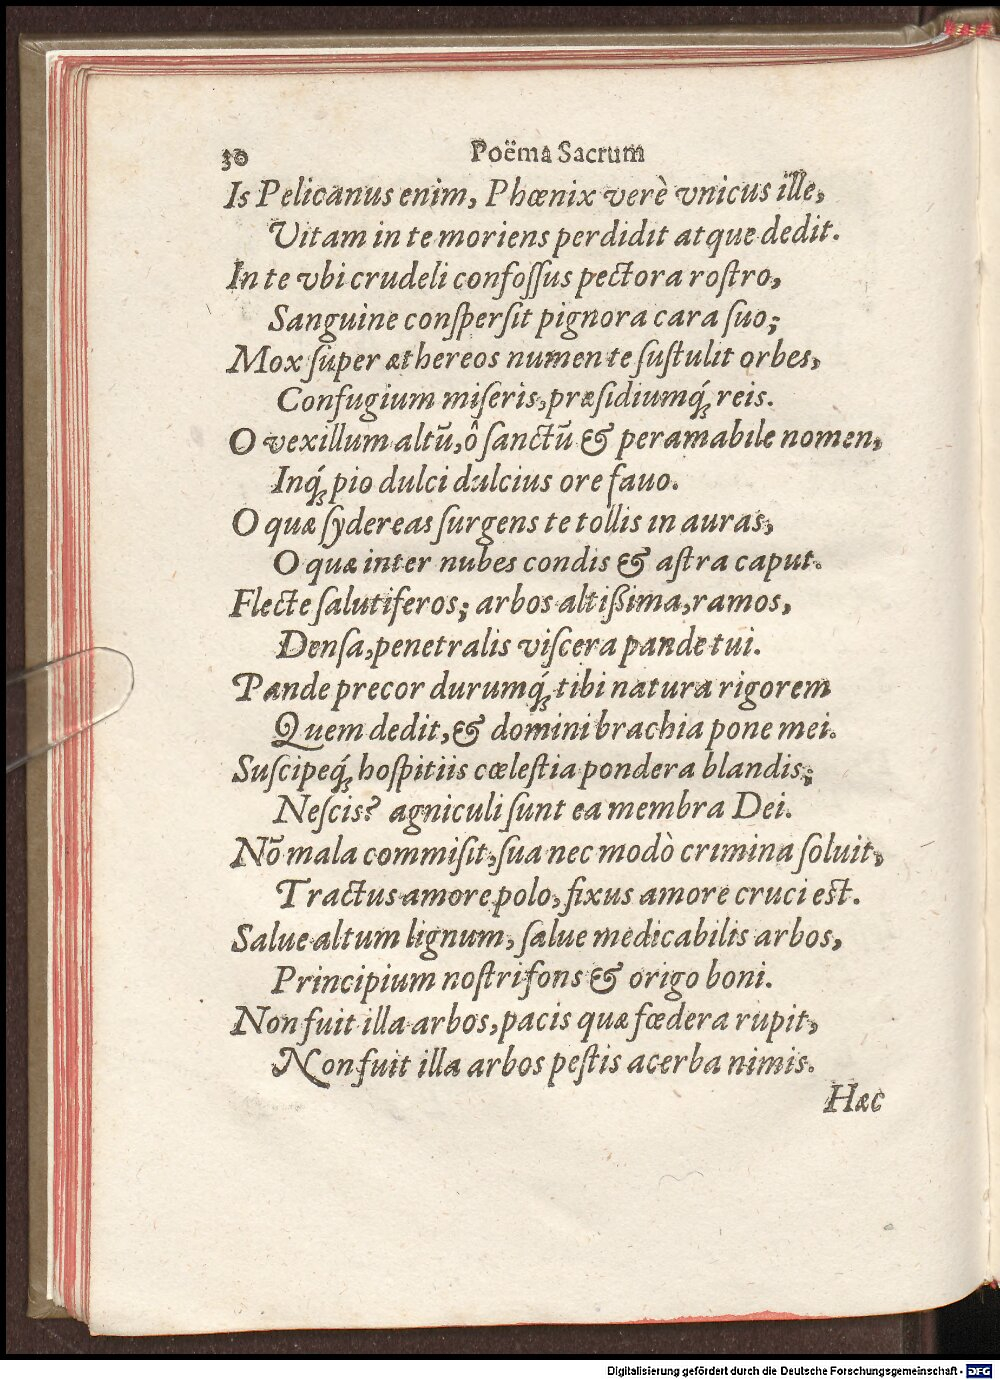 30 Poëma Sacrum
Is Pelicanus enim, Phœnix verè vnicus ille,
Vitam in te moriens perdidit atque dedit.
In te vbi crudeli confoſſus pectora roſtro,
Sanguine conſperſit pignora cara ſuo;
Mox ſuper æthereos numen te ſuſtulit orbes,
Confugium miſeris, præſidiumq́ꝫ reis.
O vexillum altū, ô ſanctū & peramabile nomen,
Inq́ꝫ pio dulci dulcius ore fauo.
O quæ ſydereas ſurgens te tollis in auras,
O quæ inter nubes condis & aſtra caput.
Flecte ſalutiferos; arbos altißima, ramos,
Denſa, penetralis viſcera pande tui.
Pande precor durumq́ꝫ tibi natura rigorem
Quem dedit, & domini brachia pone mei.
Suſcipeq́ꝫ hoſpitiis cœleſtia pondera blandis;
Neſcis? agniculi ſunt ea membra Dei.
Nō mala commiſit, ſua nec modò crimina ſoluit,
Tractus amore polo, fixus amore cruci eſt.
Salue altum lignum, ſalue medicabilis arbos,
Principium noſtri fons & origo boni.
Non fuit illa arbos, pacis quæ fœdera rupit,
Non fuit illa arbos peſtis acerba nimis.
Hæc
Digitalisierung gefördert durch die Deutsche Forschungsgemeinschaft - DFG